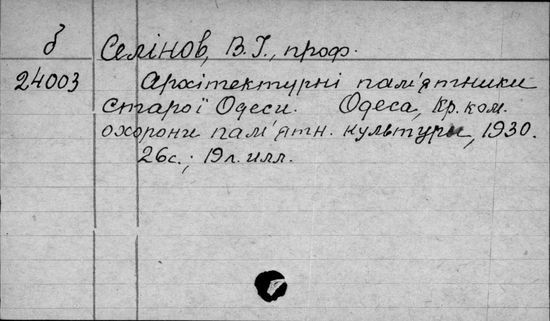 б Селінов, В.І., проф.
24003 Архітектурні пам'ятники
старої Одеси. Одеса, Кр. ком.
охорони пам'ятн. культури, 1930.
26с.; 19л. илл.